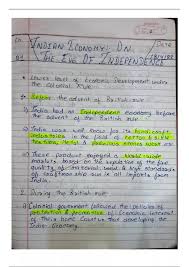 Ch
01
INDIAN ECONOMY: ON
THE EVE OF INDEPENDENCE
DATE
* Lower level of Economic Development under
the Colonial Rule
* Before the advent of British rule
1) India had an Independent Economy before
the advent of the British rule.
2) India was well known for its handicraft
industries in the field of cotton & silk
textiles, Metal & precious stones work etc
3) These product enjoyed a world wide
market based on the reputation of the fine
quality of material used & high standards
of craftmanship seen in all imports from
India.
2. During the British Rule
1) Colonial government followed the policies of
protection & promotion of Economic interest
of their home country than developing
the Indian Economy.